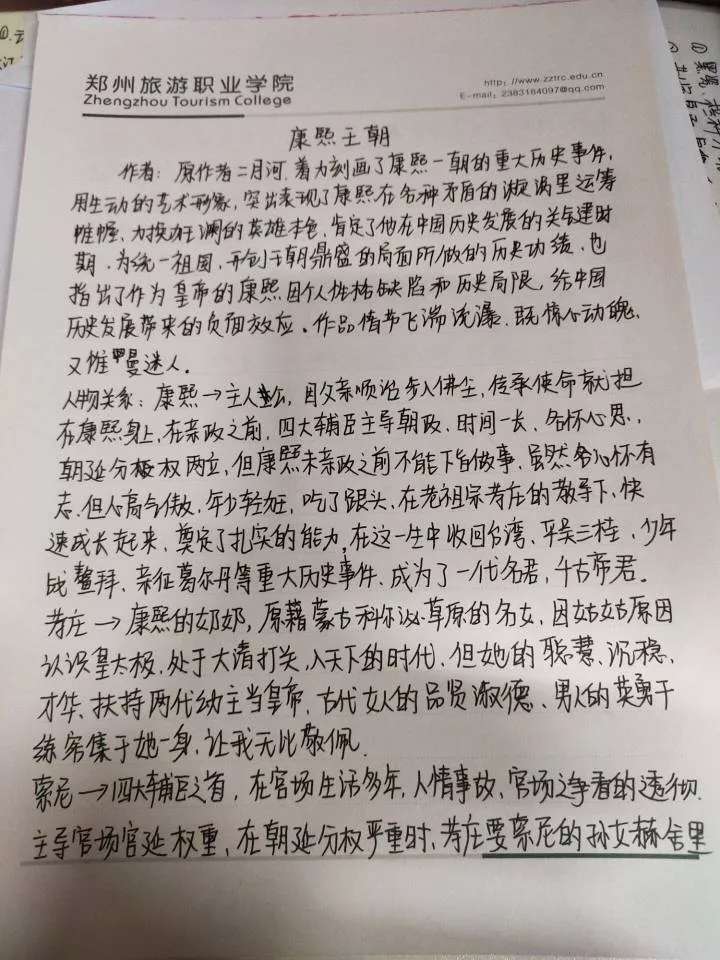 郑州旅游职业学院
Zhengzhou Tourism College
http://www.zztrc.edu.cn
E-mail: 2383184097@qq.com
康熙王朝
作者：原作者二月河.着力刻画了康熙一朝的重大历史事件,
用生动的艺术形象,突出表现了康熙在各种矛盾的漩涡里运筹
帷幄、力挽狂澜的英雄本色,肯定了他在中国历史发展的关键时
期、为统一祖国,开创王朝鼎盛的局面所做的历史功绩,也
指出了作为皇帝的康熙因个人性格缺陷和历史局限,给中国
历史发展带来的负面效应。作品情节飞湍流瀑,既惊心动魄,
又惟曼迷人.
人物关系：康熙→主人公,因父亲顺治步入佛尘,传承使命就担
在康熙身上,在亲政之前,四大辅臣主导朝政,时间一长,各怀心思,
朝廷分极权两立,但康熙未亲政之前不能下旨做事,虽然名心怀有
志,但心高气傲,年少轻狂,吃了跟头,在老祖宗孝庄的教导下,快
速成长起来,奠定了扎实的能力,在这一生中收回台湾、平吴三桂、少年
战鳌拜、亲征葛尔丹等重大历史事件,成为了一代名君,千古帝君.
孝庄→康熙的奶奶,原籍蒙古科尔沁草原的名女,因姑姑原因
认识皇太极,处于大清打关,入天下的时代,但她的聪慧、沉稳、
才华、扶持两代幼主当皇帝,古代女人的品贤淑德、男人的英勇干
练容集于她一身,让我无比敬佩.
索尼→四大辅臣之首,在官场生活多年,人情事故,官场之争看的透彻.
主导官场官廷权重,在朝廷分权严重时,孝庄要索尼的孙女赫舍里